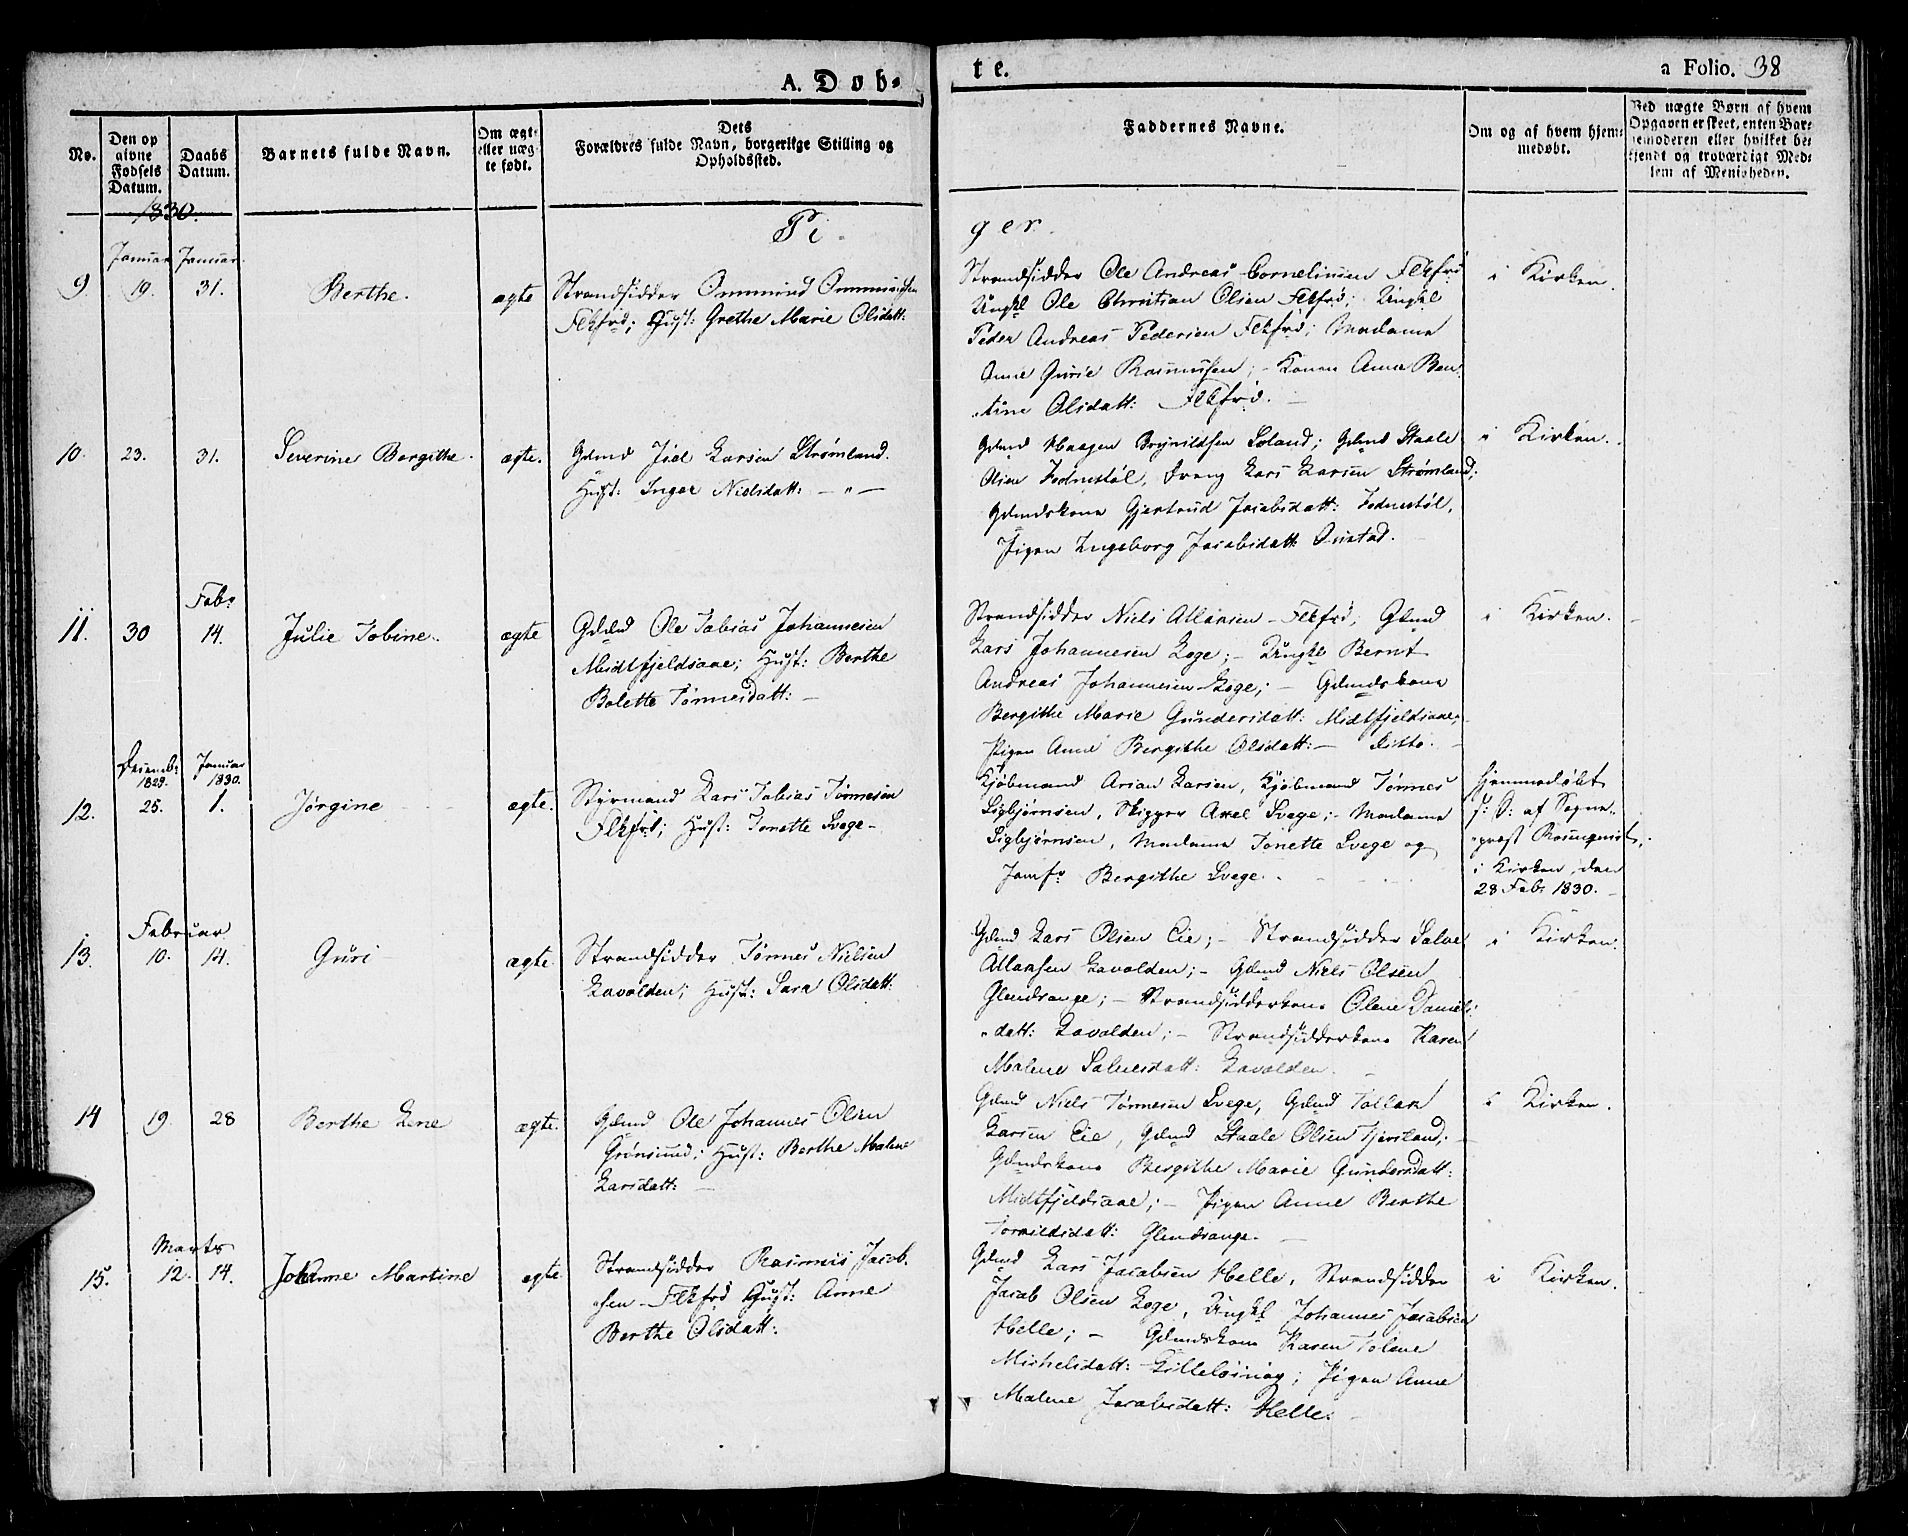 A. Døb-
te.
a Folio. 38
No.
Den op
givne
Fødsels
Datum.
Daabs
Datum.
Barnets fulde Navn.
Om ægte
eller uæg
te født.
Dets
Forældres fulde Navn, borgerlige Stilling og
Opholdssted.
Faddernes Navne.
Om og af hvem hjem-
medøbt.
Ved uægte Børn af hvem
Opgaven er skeet, enten Bar-
nemoderen eller hvilket be-
kjendt og troværdigt Med-
lem af Menigheden.
1830.
Pi
ger.
Januar Januar
9. 19. 31. Berthe. ægte
Strandsidder Ommund Ommundsen
Flkfrd; Hust: Grethe Marie Olsdatt:
Strandsidder Ole Andreas Cornelinsen Flkfrd
Ungkl Ole Christian Olsen Flkfrd; Ungkl
Peder Andreas Pedersen Flkfrd; Madame
Anne Gurie Rasmussen; - Konen Anna Ben-
tine Olsdatt: Flkfrd.
i Kirken.
10. 23. 31. Severine Bergithe. ægte.
Gdmd Joel Larsen Strømland.
Hust: Inger Nielsdatt: — " —
Gdmd Haagen Brynildsen Soland; Gdmd Staale
Olsen Fedmestøl, Dreng Lars Larsen Strømland;
Gdmdskone Gjertrud Jacobsdatt: Fedmestøl,
Pigen Ingeborg Jacobsdatt: Qustad.
i Kirken.
Febr
11. 30 14. Julie Tobine. ægte
Gdmd Ole Tobias Johannesen
Midtfjeldsaae; Hust: Berthe
Bolette Tønnesdatt: —
Strandsidder Niels Atlaksen - Flkfrd, Gdmd
Lars Johannesen Loge; - Ungkl Bernt
Andreas Johannesen Loge; - Gdmdskone
Bergithe Marie Gundersdatt: Midtfjeldsaae;
Pigen Anne Bergithe Olsdatt: — Ditto.
i Kirken.
Decemb: Januar
1829. 1830.
12. 25. 1. Jørgine ægte.
Styrmand Lars Tobias Tønnesen
Flkfrd; Hust: Tonette Svege
Kjøbmand Arian Larsen, Kjøbmand Tønnes
Sigbjørnsen, Skipper Axel Svege; - Madame
Sigbjørnsen, Madame Tonette Svege og
Jomfr Bergithe Svege.
hjemmedøbt
f: D: af Sogne-
præst Rosenqvist,
i Kirken, den
28 Feb: 1830.
Februar
13. 10. 14. Guri ægte.
Strandsidder Tønnes Nielsen
Lavolden; Hust: Sara Olsdatt:
Gdmd Lars Olsen Eie; - Strandsidder Salve
Atlaksen Lavolden; - Gdmd Niels Olsen
Glendrange; - Strandsidderkone Olene Daniels
datt: Lavolden; - Strandsidderkone Karen
Malene Salvesdatt: Lavolden.
i Kirken.
14 19. 28 Berthe Lene ægte.
Gdmd Ole Johannes Olsen
Grønsund; Hust: Berthe Malene
Larsdatt: —
Gdmd Niels Tønnesen Svege, Gdmd Tollak
Larsen Eie, Gdmd Staale Olsen Tjorsland;
Gdmdskone Bergithe Marie Gundersdatt:
Midtfjeldsaae; - Pigen Anne Berthe
Torkildsdatt: Glendrange.
i Kirken.
Marts
15. 12. 14. Johanne Martine ægte.
Strandsidder Rasmus Jacob-
sen - Flkfrd Hust: Anne
Berthe Olsdatt:
Gdmd Lars Jacobsen Helle, Strandsidder
Jacob Olsen Loge, Ungkl Johannes Jacobsen
Helle; - Gdmdskone Karen Tolene
Michelsdatt: ; Pigen Anne
Malene Jacobsdatt: Helle.
i Kirken.